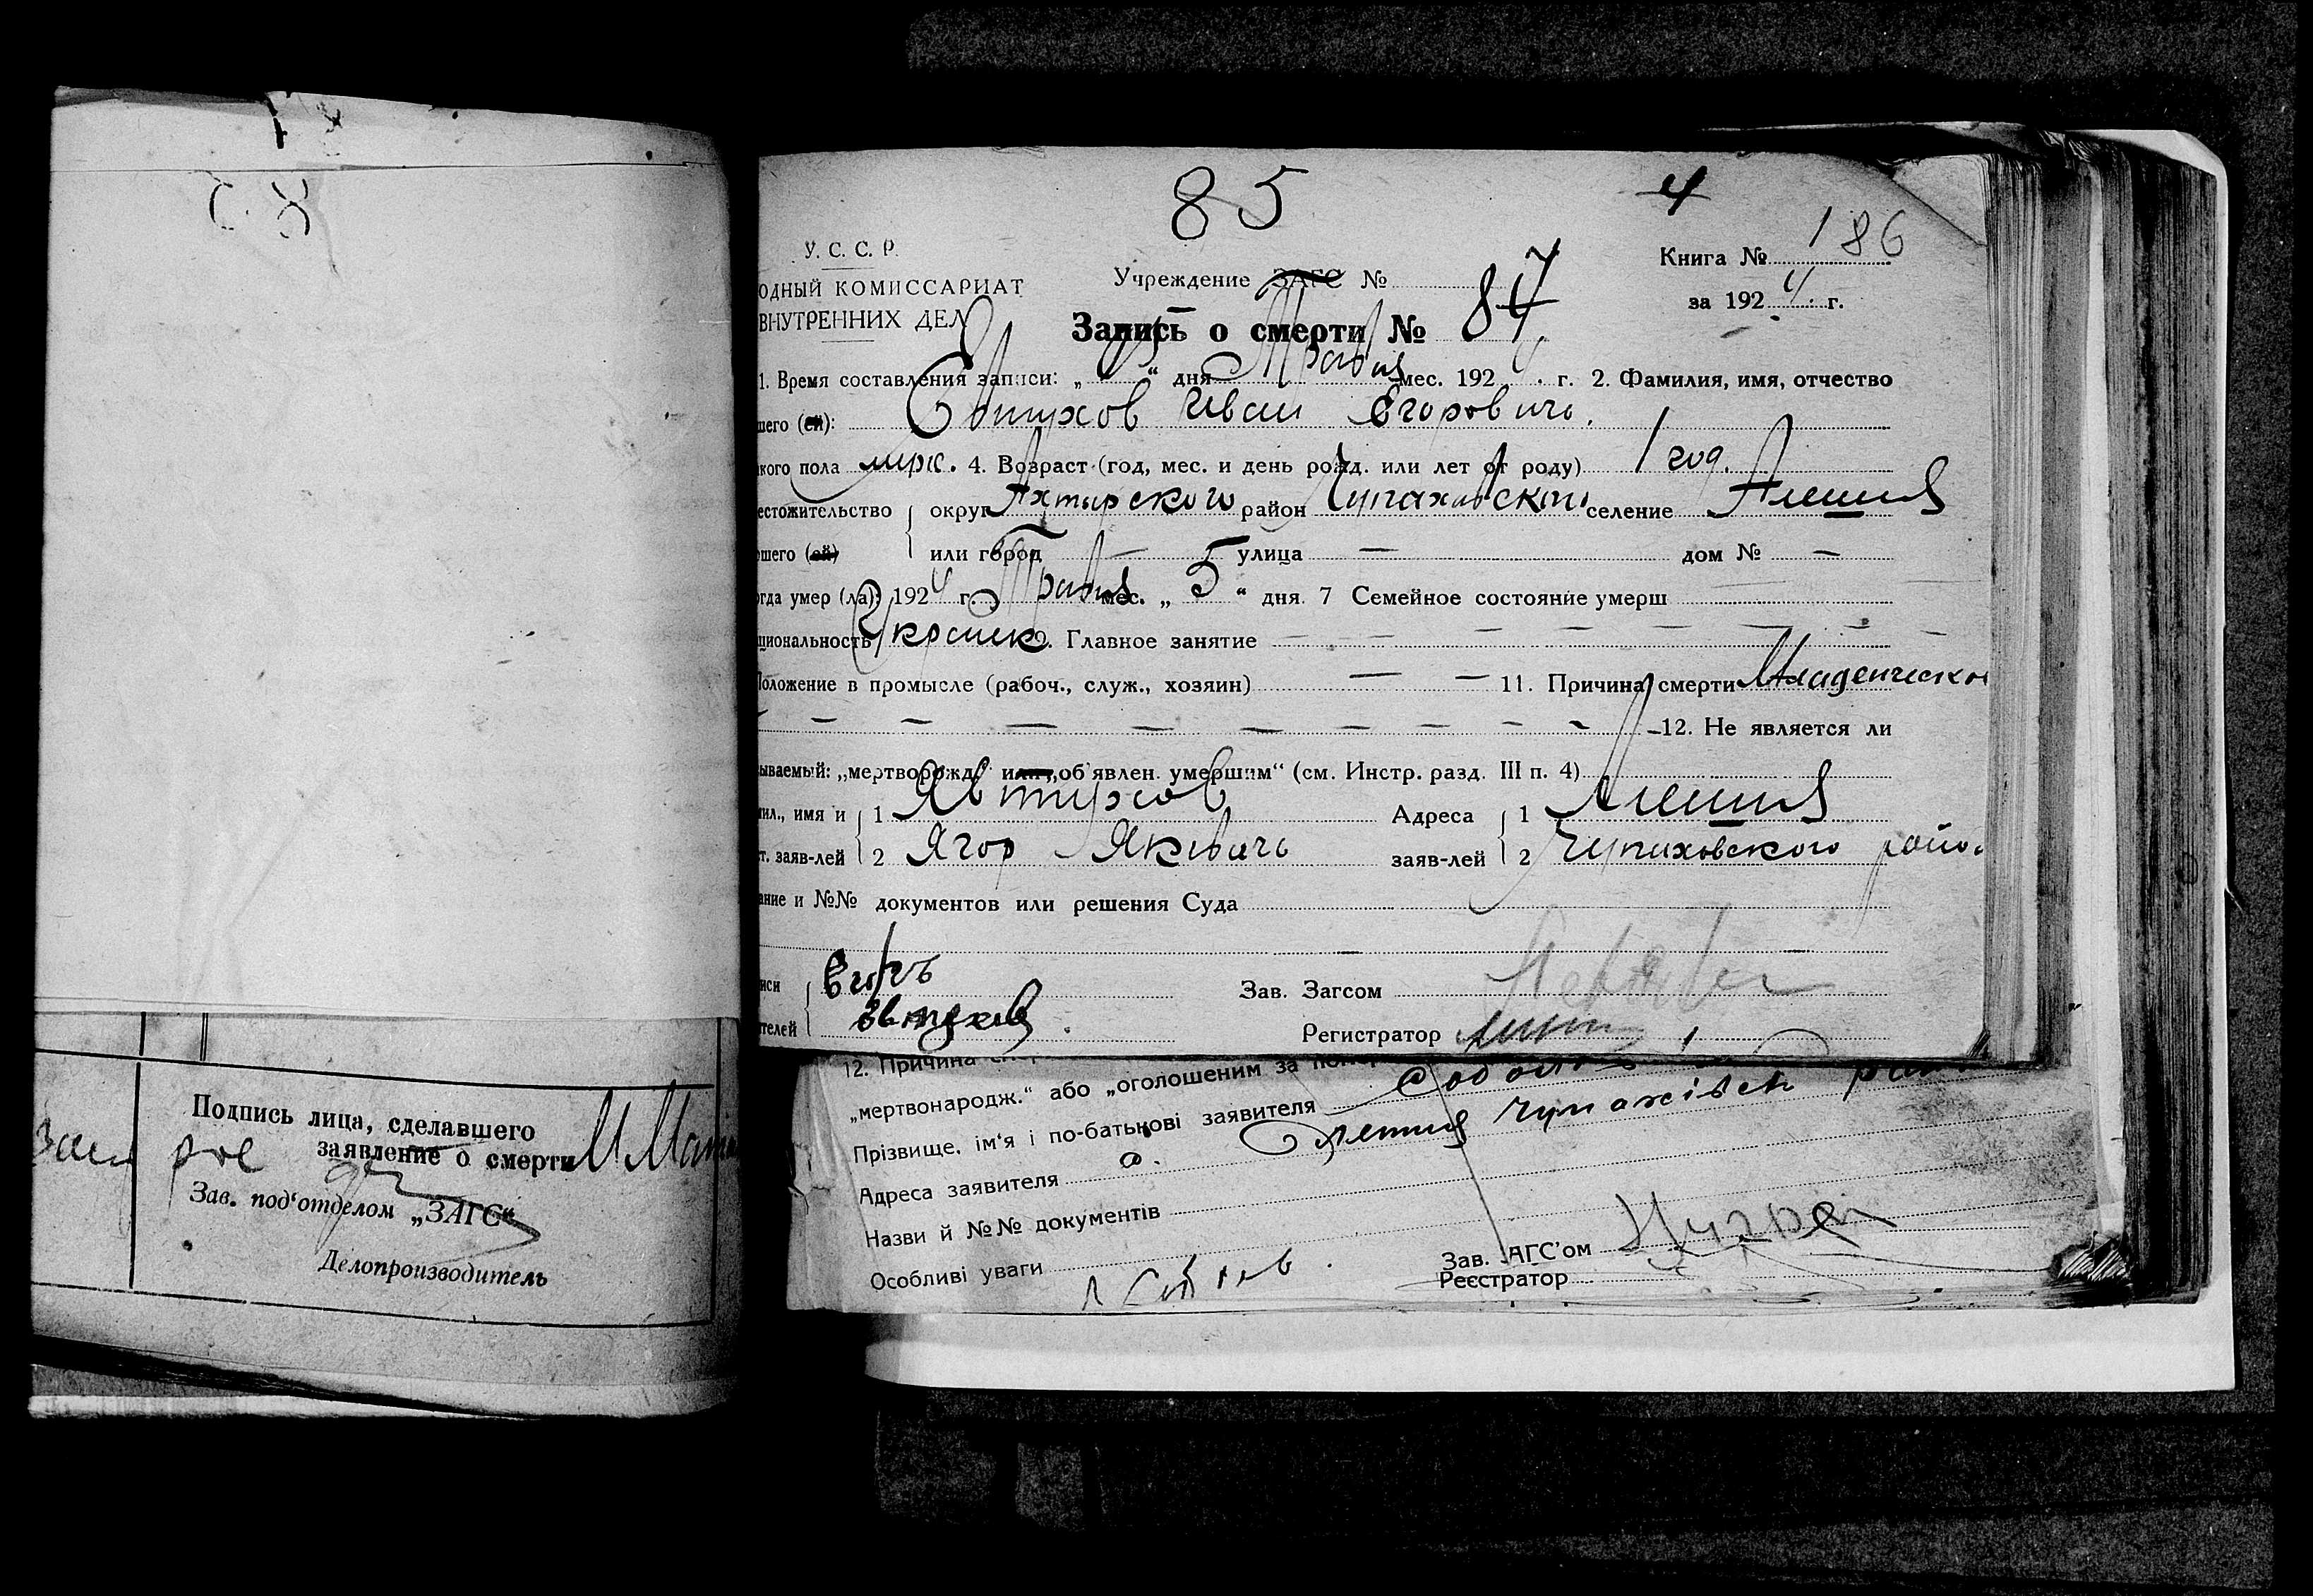 Подпись лица, сделавшего
заявление о смерти
Зав. под'отделом „ЗАГС“
Делопроизводитель
85
4
У. С. С. Р.
ОДНЫЙ КОМИССАРИАТ
ВНУТРЕННИХ ДЕЛ
Учреждение ЗАГС №
Книга № 186
за 1924 г.
Запись о смерти № 87
1. Время составления записи: „ “ дня Травня мес. 1924 г. 2. Фамилия, имя, отчество
шего (ей): Евтухов Иван Егорович.
кого пола муж. 4. Возраст (год, мес. и день рожд. или лет от роду) 1 год.
естожительство округ Ахтырского район Чупаховского селение Алешня
ршего (ей) или город — улица — дом № —
огда умер (ла): 1924 г. Травня мес. „ 5 “ дня. 7 Семейное состояние умерш
циональность Украинк. 9. Главное занятие — — — — — — — —
Положение в промысле (рабоч., служ., хозяин) — — 11. Причина смерти Младенческая
— — — — — — — — — 12. Не является ли
ываемый: „мертворожд.“ или „об'явлен умершим“ (см. Инстр. разд. III п. 4)
ил., имя и 1 Явтухов Адреса 1 Алешня
т. заяв-лей 2 Ягор Якович заяв-лей 2 Чупаховского район
ание и №№ документов или решения Суда
иси Егор Зав. Загсом
ителей Евтухов. Регистратор
12. Причина
„мертвонародж.“ або „оголошеним за
Прізвище, ім'я і по-батькові заявителя
Адреса заявителя с. Олешня Чупахівськ рай
Назви й №№ документів
Особливі уваги
Зав. АГС'ом
Реєстратор